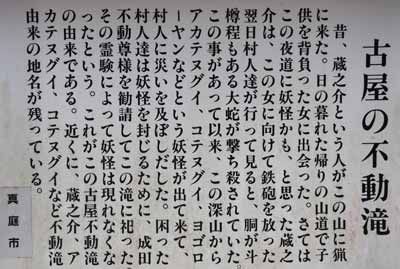 古屋の不動滝
昔、蔵之介という人がこの山に猟
に来た。日の暮れた帰りの山道で子
供を背負った女に出会った。さては
この夜道に妖怪かも、と思った蔵之
介は、この女に向けて鉄砲を放った
翌日村人達が行って見ると、胴が斗
樽程もある大蛇が撃ち殺されていた。
この事があって以来、この深山から
アカテヌグイ、コテヌグイ、ヨゴロ
ーヤンなどという妖怪が出て来て、
村人に災いを及ぼしだした。困った
村人達は妖怪を封じるために、成田
不動尊様を勧請してこの滝に祀った。
その霊験によって妖怪は現れなくな
ったという。これがこの古屋不動滝
の由来である。近くに、蔵之介、ア
カテヌグイ、コテヌグイなど不動滝
由来の地名が残っている。
真庭市